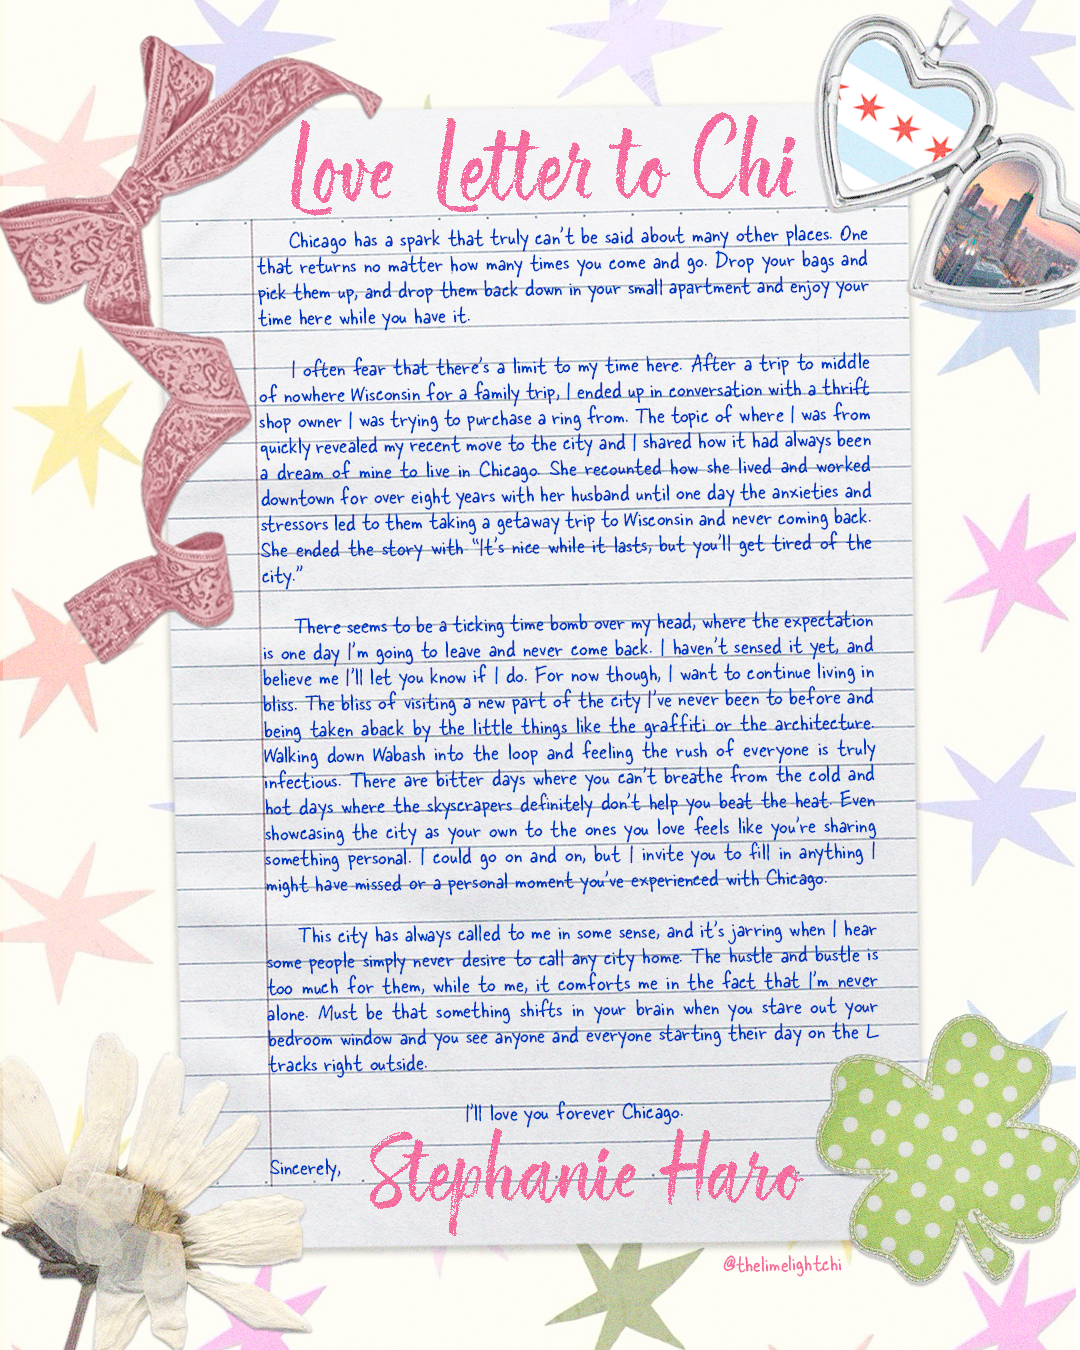 Love Letter to Chi
Chicago has a spark that truly can't be said about many other places. One
that returns no matter how many times you come and go. Drop your bags and
pick them up, and drop them back down in your small apartment and enjoy your
time here while you have it.
I often fear that there's a limit to my time here. After a trip to middle
of nowhere Wisconsin for a family trip, I ended up in conversation with a thrift
shop owner I was trying to purchase a ring from. The topic of where I was from
quickly revealed my recent move to the city and I shared how it had always been
a dream of mine to live in Chicago. She recounted how she lived and worked
downtown for over eight years with her husband until one day the anxieties and
stressors led to them taking a getaway trip to Wisconsin and never coming back.
She ended the story with "It's nice while it lasts, but you'll get tired of the
city."
There seems to be a ticking time bomb over my head, where the expectation
is one day I'm going to leave and never come back. I haven't sensed it yet, and
believe me I'll let you know if I do. For now though, I want to continue living in
bliss. The bliss of visiting a new part of the city I've never been to before and
being taken aback by the little things like the graffiti or the architecture.
Walking down Wabash into the loop and feeling the rush of everyone is truly
infectious. There are bitter days where you can't breathe from the cold and
hot days where the skyscrapers definitely don't help you beat the heat. Even
showcasing the city as your own to the ones you love feels like you're sharing
something personal. I could go on and on, but I invite you to fill in anything I
might have missed or a personal moment you've experienced with Chicago.
This city has always called to me in some sense, and it's jarring when I hear
some people simply never desire to call any city home. The hustle and bustle is
too much for them, while to me, it comforts me in the fact that I'm never
alone. Must be that something shifts in your brain when you stare out your
bedroom window and you see anyone and everyone starting their day on the L
tracks right outside.
I'll love you forever Chicago.
Sincerely, Stephanie Haro
@thelimelightchi